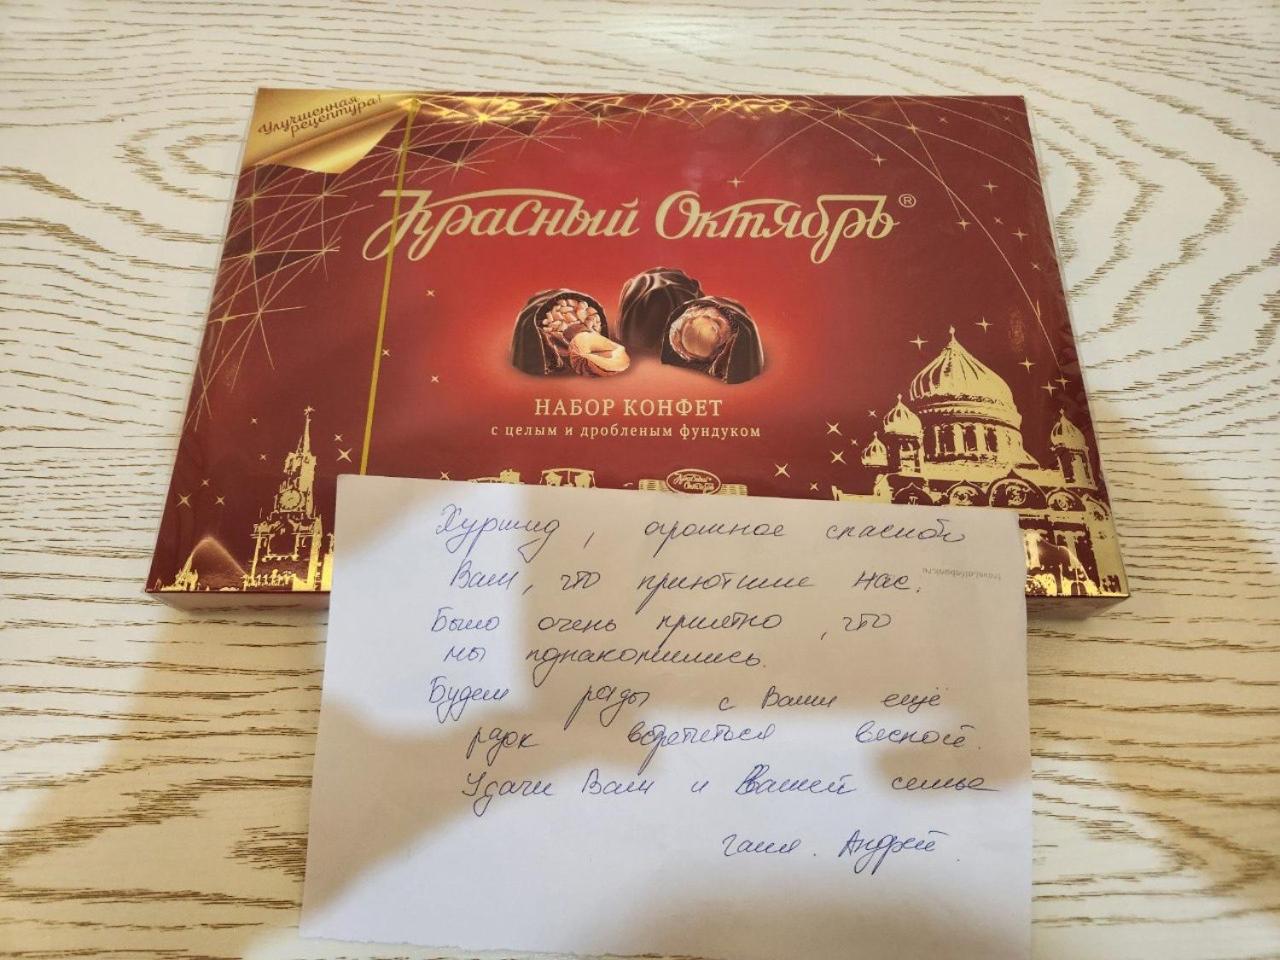 Улучшенная
рецептура!
Красный Октябрь®
НАБОР КОНФЕТ
с целым и дробленым фундуком
Красный
Октябрь
Хуршид, огромное спасибо
Вам, что приютили нас.
Было очень приятно, что
мы познакомились.
Будем рады с Вами ещё
разок встретиться весной.
Удачи Вам и Вашей семье
Галя. Андрей.